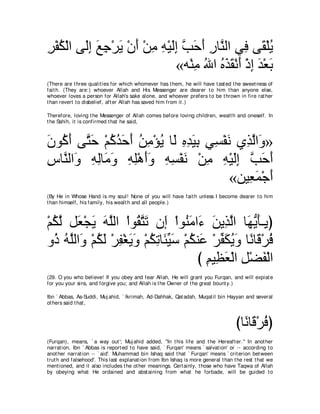 يُلْقَى فِي النَّارِ أَحَبَّ إِلَيْهِ مِنْ أَنْ يَرْجِعَ إِلَى الْكُفْرِ
بَعْدَ إِذْ أَنْقَذَهُ اللهُ مِنْه»
(There are three qualities for which whomever has them, he will have tasted the sweetness of
faith. (They are:) whoever Allah and His Messenger are dearer to him than anyone else,
whoever loves a person for Allah's sake alone, and whoever prefers to be thrown in fire rather
than revert to disbelief, after Allah has saved him from it.)
Therefore, loving the Messenger of Allah comes before loving children, wealth and oneself. In
the Sahih, it is confirmed that he said,
«وَالَّذِي نَفْسِي بِيَدِهِ لَا يُؤْمِنُ أَحَدُكُمْ حَتَّى أَكُونَ
أَحَبَّ إِلَيْهِ مِنْ نَفْسِهِ وَأَهْلِهِ وَمَالِهِ وَالنَّاسِ
أَجْمَعِين»
(By He in Whose Hand is my soul! None of you will have faith unless I become dearer to him
than himself, his family, his wealth and all people.)
(يأَيُّهَا الَّذِينَ ءَامَنُوا إِن تَتَّقُوا اللَّهَ يَجْعَل لَّكُمْ
فُرْقَانًا وَيُكَفِّرْ عَنكُمْ سَيِّئَاتِكُمْ وَيَغْفِرْ لَكُمْ وَاللَّهُ ذُو
الْفَضْلِ الْعَظِيمِ )
(29. O you who believe! If you obey and fear Allah, He will grant you Furqan, and will expiate
for you your sins, and forgive you; and Allah is the Owner of the great bounty.)
Ibn `Abbas, As-Suddi, Mujahid, `Ikrimah, Ad-Dahhak, Qatadah, Muqatil bin Hayyan and several
others said that,
(فُرْقَانًا)
(Furqan), means, `a way out'; Mujahid added, "In this life and the Hereafter." In another
narration, Ibn `Abbas is reported to have said, `Furqan' means `salvation' or -- according to
another narration -- `aid'. Muhammad bin Ishaq said that `Furqan' means `criterion between
truth and falsehood'. This last explanation from Ibn Ishaq is more general than the rest that we
mentioned, and it also includes the other meanings. Certainly, those who have Taqwa of Allah
by obeying what He ordained and abstaining from what he forbade, will be guided to